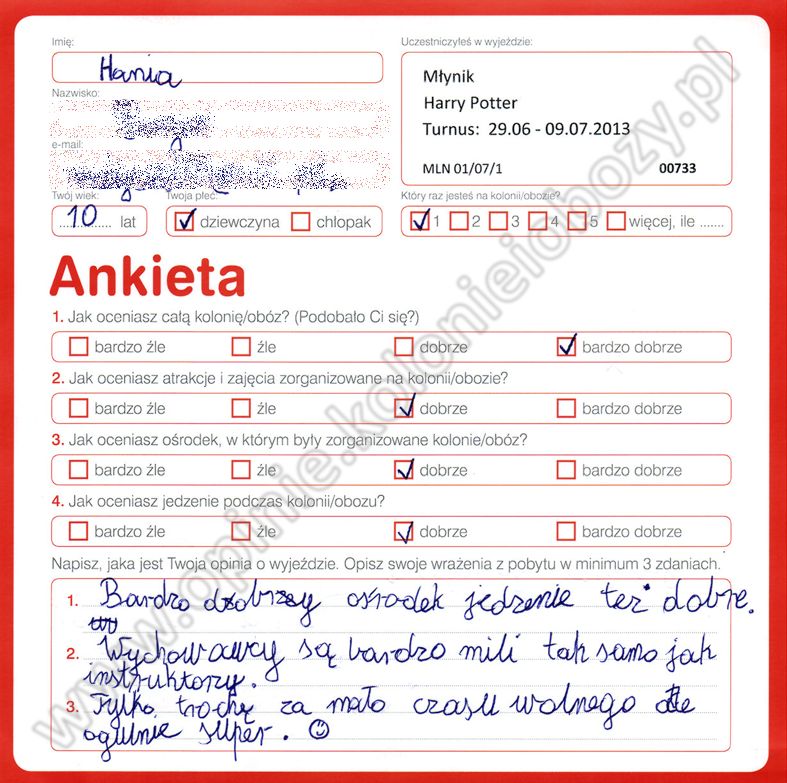 Imię:
Uczestniczyłeś w wyjeździe:
Hania
Młynik
Harry Potter
Turnus: 29.06 - 09.07.2013
MLN 01/07/1 00733
Nazwisko:
e-mail:
Twój wiek:
Twoja płeć:
Który raz jesteś na kolonii/obozie?
10 lat
dziewczyna chłopak
1 2 3 4 5 więcej, ile .......
Ankieta
1. Jak oceniasz całą kolonię/obóz? (Podobało Ci się?)
bardzo źle źle dobrze bardzo dobrze
2. Jak oceniasz atrakcje i zajęcia zorganizowane na kolonii/obozie?
bardzo źle źle dobrze bardzo dobrze
3. Jak oceniasz ośrodek, w którym były zorganizowane kolonie/obóz?
bardzo źle źle dobrze bardzo dobrze
4. Jak oceniasz jedzenie podczas kolonii/obozu?
bardzo źle źle dobrze bardzo dobrze
Napisz, jaka jest Twoja opinia o wyjeździe. Opisz swoje wrażenia z pobytu w minimum 3 zdaniach.
1. Bardzo dobrzy ośrodek jedzenie też dobre.
2. Wychowawcy są bardzo mili tak samo jak
instruktorzy.
3. Tylko trochę za mało czasu wolnego ale
ogulnie super. ☺
www.opinie.kolonieiobozy.pl